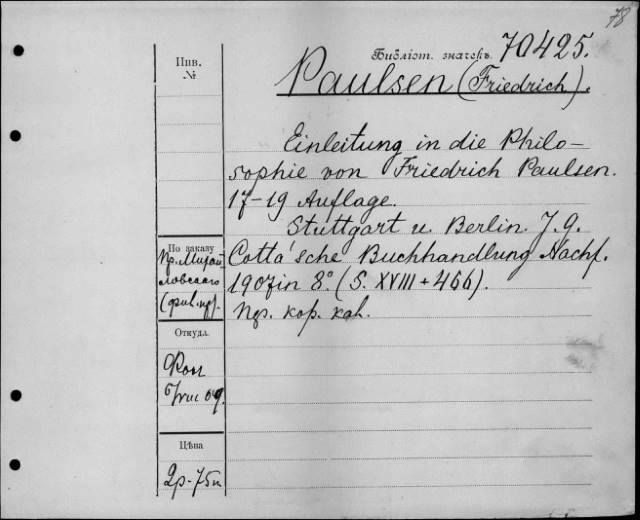 78
Библіот. значекъ 70425.
Инв.
№
Paulsen (Friedrich).
Einleitung in die Philo-
sophie von Friedrich Paulsen.
17-19 Auflage.
Stuttgart u. Berlin. J. G.
Cotta'sche Buchhandlung Nachf.
1907 in 8° (S. XVIII + 466).
кор.
По заказу
Пр. Мирой
ловскаго
Откуда.
Фон
09.
Цѣна
2р-75к